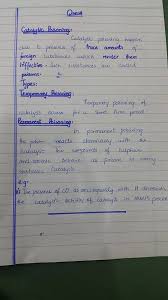 Quest
Catalytic Poisoning:
Catalytic poisoning happen
due to presence of trace amounts of
foreign substances which render them
ineffective. Such substances are called
poisons.
Types:
Temporary Poisoning:
Temporary poisoning of
catalyst occurs for a short time period
Permanent Poisoning:
In permanent poisoning
the poison reacts chemically with the
catalyst. The compounds of sulphur
and arsenic behave as poison to many
catalysts
e.g:
The presence of CO as an impurity with H decreases
the catalytic activity of catalyst in Haber's process